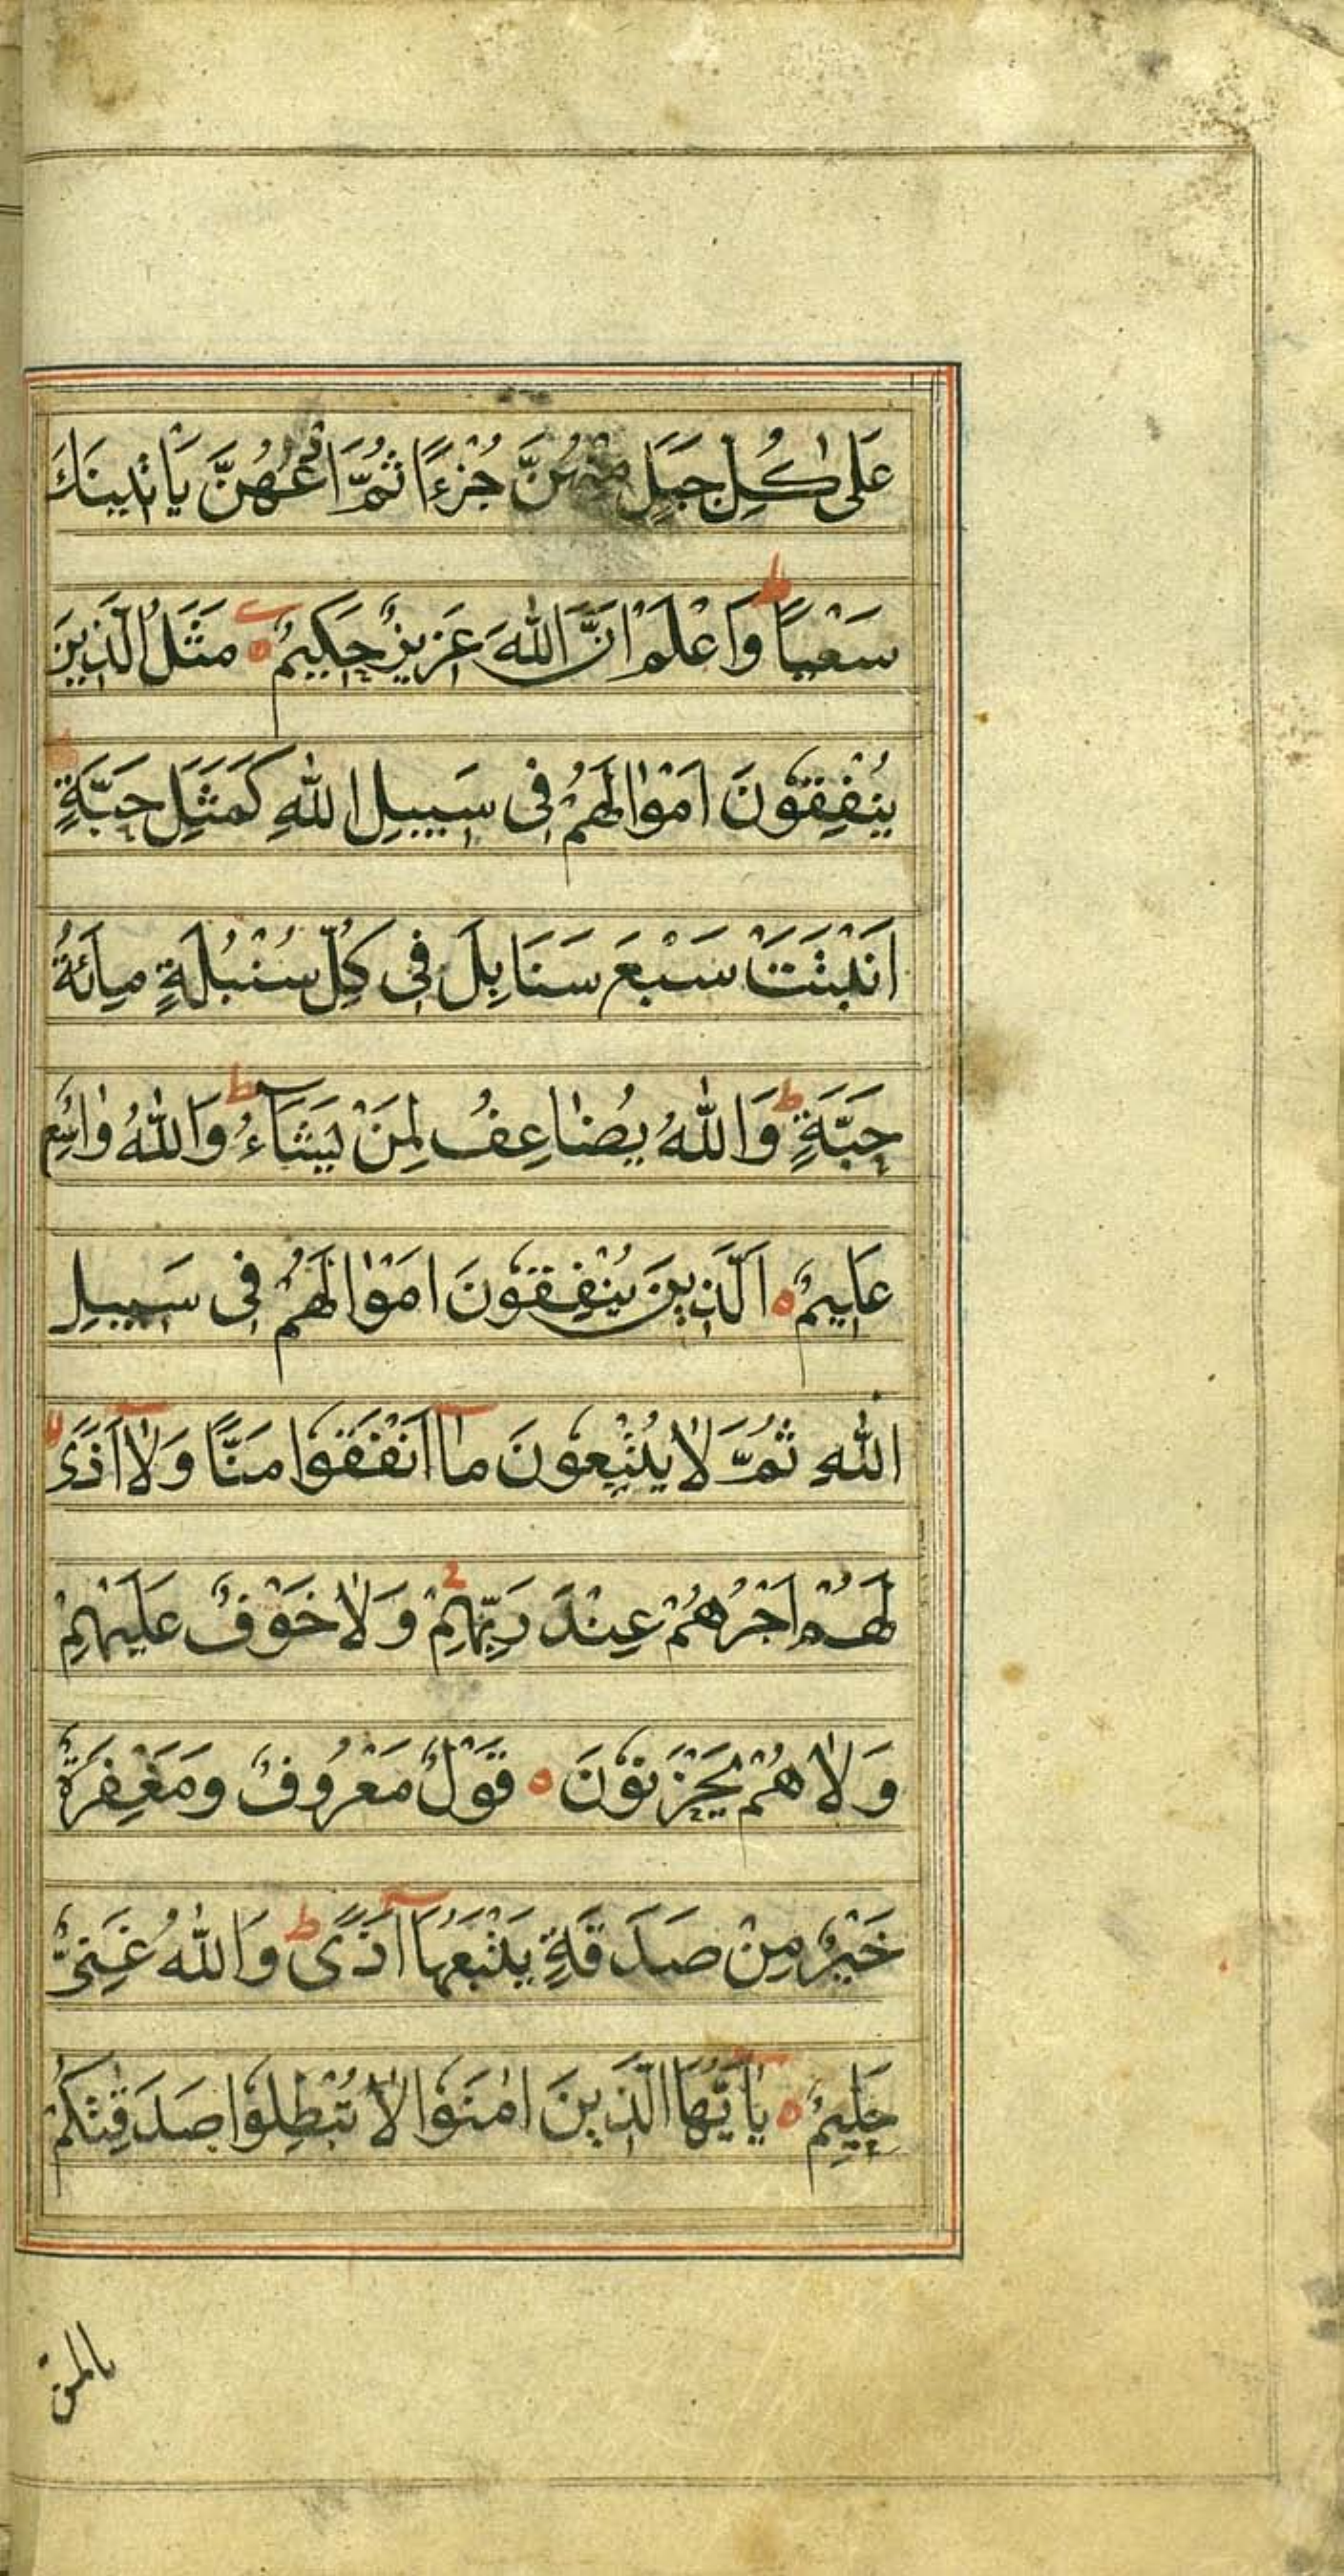 عَلٰى كُلِّ جَبَلٍ مِنْهُنَّ جُزْءًا ثُمَّ ادْعُهُنَّ يَأْتِيْنَكَ
سَعْيًا ط وَاعْلَمْ اَنَّ اللّٰهَ عَزِيْزٌ حَكِيْمٌ ه مَثَلُ الَّذِيْنَ
يُنْفِقُوْنَ اَمْوَالَهُمْ فِى سَبِيْلِ اللّٰهِ كَمَثَلِ حَبَّةٍ
اَنْبَتَتْ سَبْعَ سَنَابِلَ فِى كُلِّ سُنْبُلَةٍ مِائَةُ
حَبَّةٍ ط وَاللّٰهُ يُضَاعِفُ لِمَنْ يَشَآءُ ط وَاللّٰهُ وَاسِعٌ
عَلِيْمٌ ه اَلَّذِيْنَ يُنْفِقُوْنَ اَمْوَالَهُمْ فِى سَبِيْلِ
اللّٰهِ ثُمَّ لَا يُتْبِعُوْنَ مَآ اَنْفَقُوْا مَنًّا وَلَآ اَذًى لا
لَهُمْ اَجْرُهُمْ عِنْدَ رَبِّهِمْ ج وَلَا خَوْفٌ عَلَيْهِمْ
وَلَا هُمْ يَحْزَنُوْنَ ه قَوْلٌ مَعْرُوْفٌ وَمَغْفِرَةٌ
خَيْرٌ مِنْ صَدَقَةٍ يَتْبَعُهَآ اَذًى ط وَاللّٰهُ غَنِىٌّ
حَلِيْمٌ ه يٰٓاَيُّهَا الَّذِيْنَ اٰمَنُوْا لَا تُبْطِلُوْا صَدَقٰتِكُمْ
بالمن